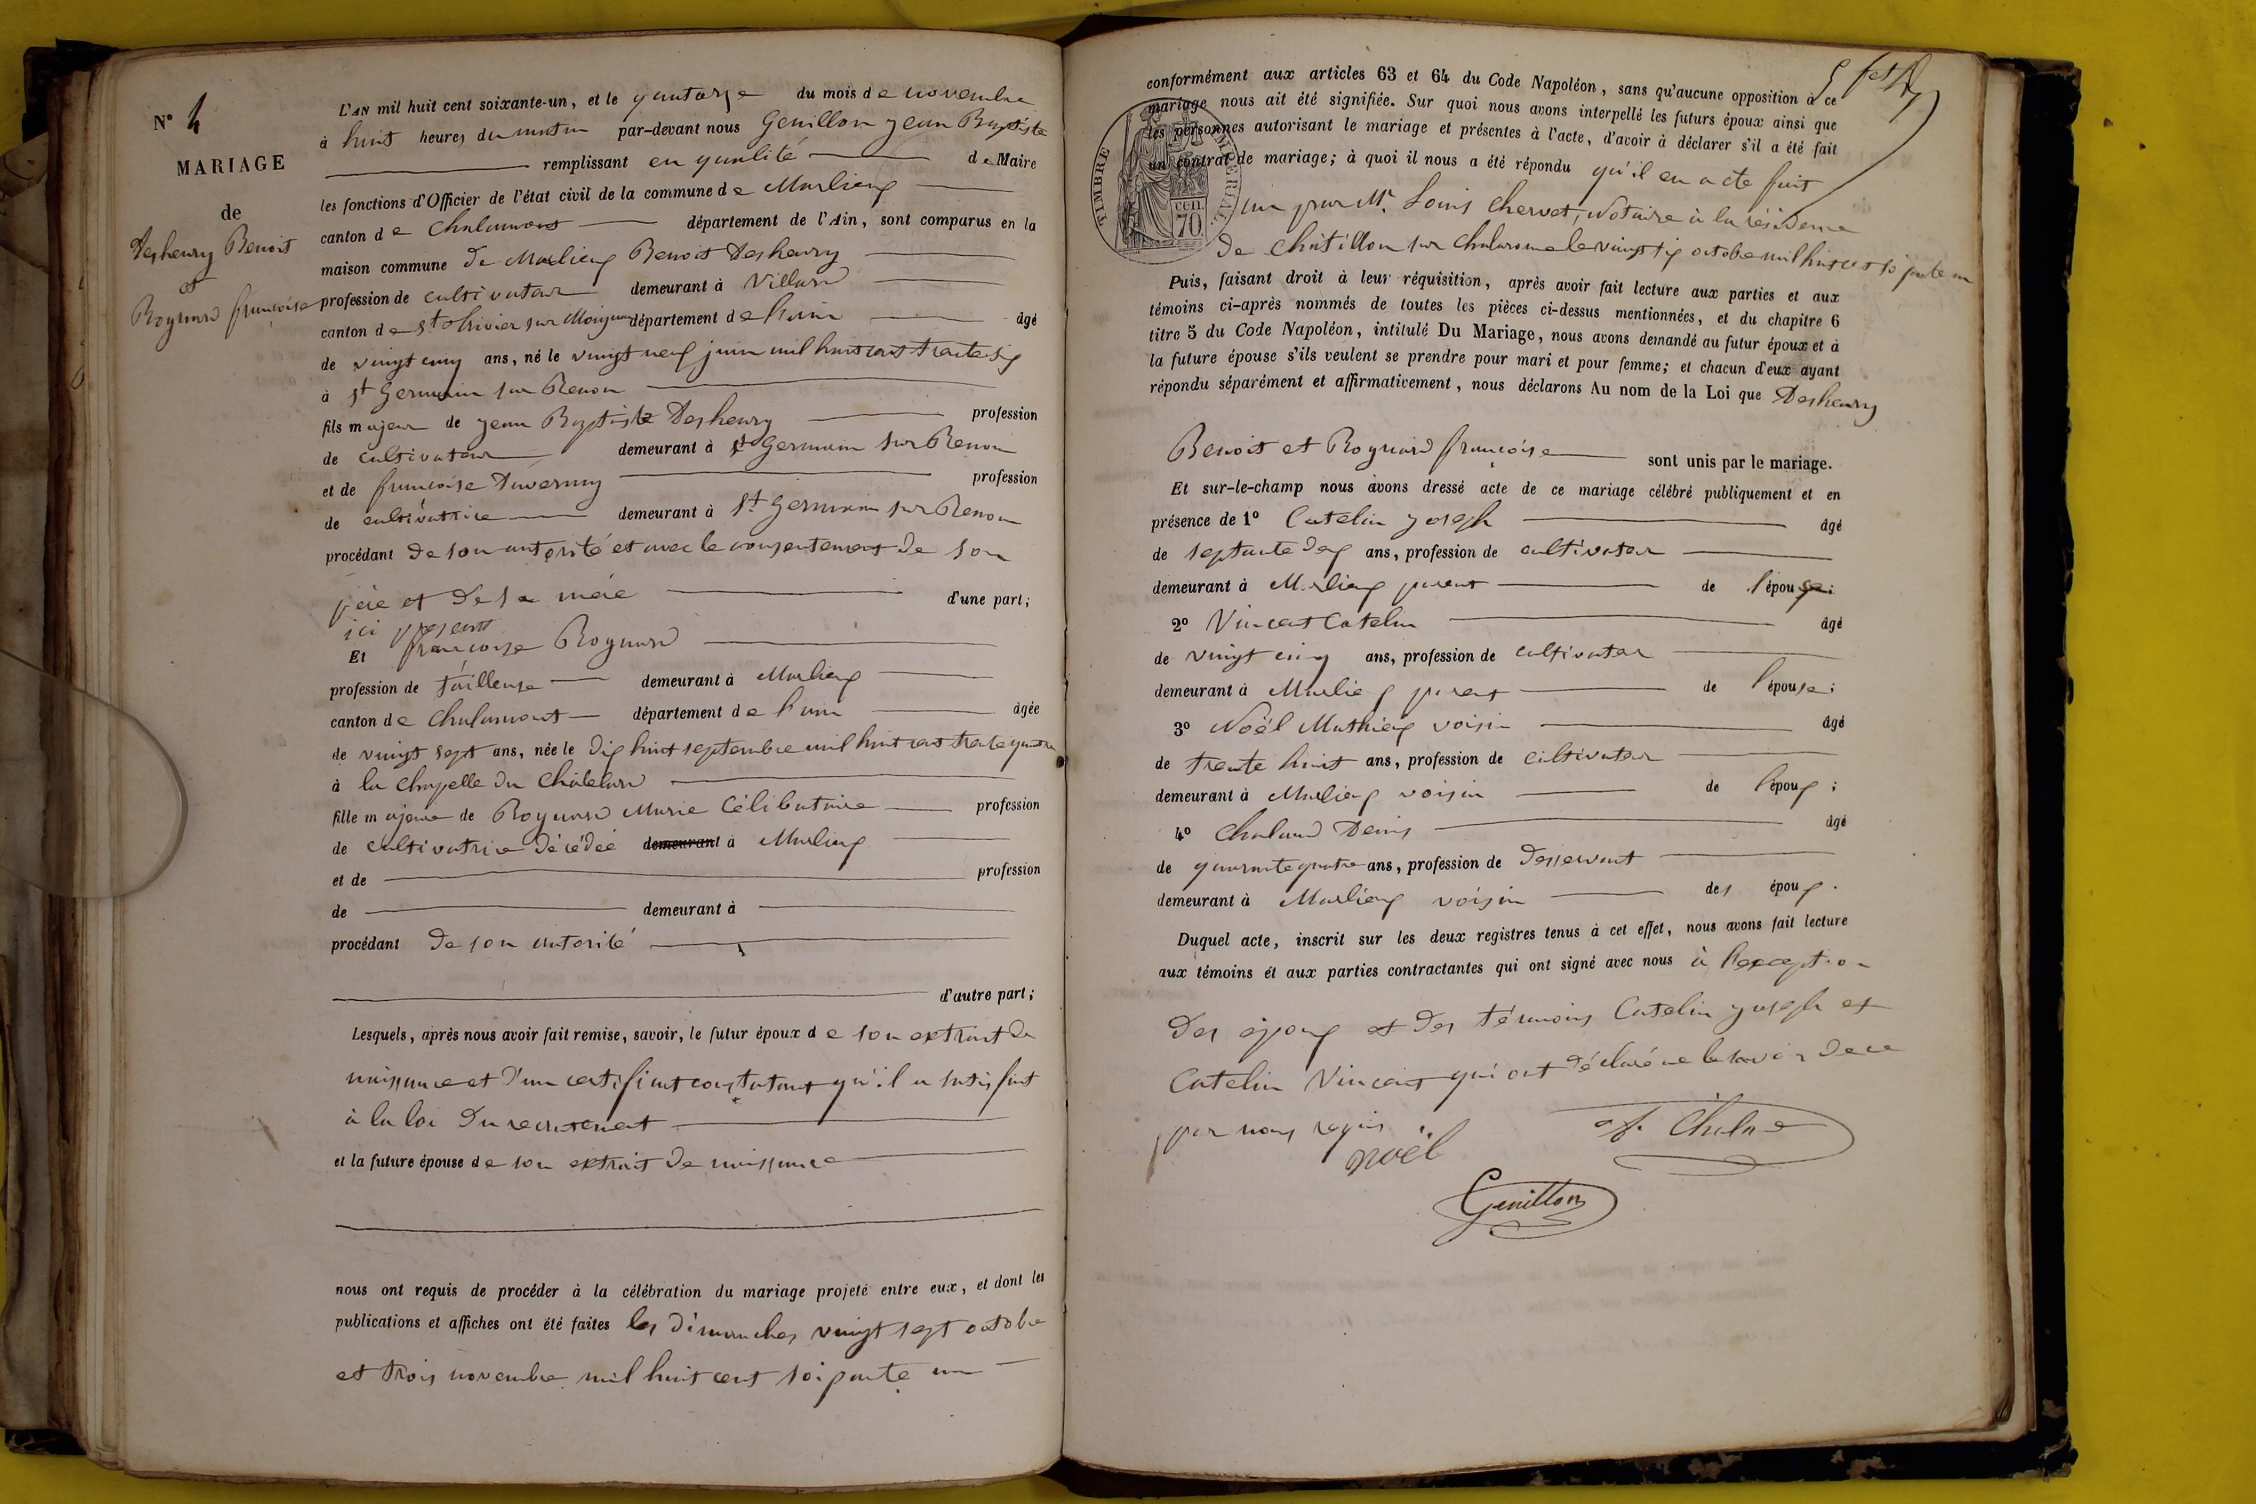 N° 4
MARIAGE
de
Deshenry Benoit
et
Roynard françoise
L'AN mil huit cent soixante-un, et le quatorze du mois de novembre
à huit heures du matin par-devant nous Genillon jean Baptiste
remplissant en qualité de Maire
les fonctions d'Officier de l'état civil de la commune de Marlieux
canton de Chalamont département de l'Ain, sont comparus en la
maison commune de Marlieux Benoit Deshenry
profession de cultivateur demeurant à Villard
canton de st département de l'ain âgé
de vingt cinq ans, né le vingt neuf juin mil huit cent trente six
à st Germain sur Renon
fils majeur de jean Baptiste Deshenry profession
de cultivateur demeurant à st Germain sur Renon
et de françoise Duvernay profession
de cultivatrice demeurant à st Germain sur Renon
procédant de son autorité et avec le consentement de son
père et de sa mère d'une part;
ici présents
Et françoise Roynard
profession de tailleuse demeurant à Marlieux
canton de Chalamont département de l'ain âgée
de vingt sept ans, née le dix huit septembre mil huit cent trente quatre
à la Chapelle du Châtelard
fille majeure de Roynard Marie Célibataire profession
de cultivatrice décédée demeurant à Marlieux
et de profession
de demeurant à
procédant de son autorité
d'autre part;
Lesquels, après nous avoir fait remise, savoir, le futur époux de son extrait de
naissance et d'un certificat constatant qu'il a satisfait
à la loi du recrutement
et la future épouse de son extrait de naissance
nous ont requis de procéder à la célébration du mariage projeté entre eux, et dont les
publications et affiches ont été faites les dimanches vingt sept octobre
et trois novembre mil huit cent soixante un
conformément aux articles 63 et 64 du Code Napoléon, sans qu'aucune opposition à ce
mariage nous ait été signifiée. Sur quoi nous avons interpellé les futurs époux ainsi que
les personnes autorisant le mariage et présentes à l'acte, d'avoir à déclarer s'il a été fait
un contrat de mariage; à quoi il nous a été répondu qu'il en a été fait
TIMBRE IMPÉRIAL
70 cen
un par Mr. Louis Chervet, Notaire à la résidence
de Châtillon sur Chalaronne le vingt six octobre mil huit cent soixante un
Puis, faisant droit à leur réquisition, après avoir fait lecture aux parties et aux
témoins ci-après nommés de toutes les pièces ci-dessus mentionnées, et du chapitre 6
titre 5 du Code Napoléon, intitulé Du Mariage, nous avons demandé au futur époux et à
la future épouse s'ils veulent se prendre pour mari et pour femme; et chacun d'eux ayant
répondu séparément et affirmativement, nous déclarons Au nom de la Loi que Deshenry
Benoit et Roynard françoise sont unis par le mariage.
Et sur-le-champ nous avons dressé acte de ce mariage célébré publiquement et en
présence de 1° Catelin joseph âgé
de septante deux ans, profession de cultivateur
demeurant à Marlieux parent de l'épouse;
2° Vincent Catelin âgé
de vingt cinq ans, profession de cultivateur
demeurant à Marlieux parent de l'épouse;
3° Noël Mathieux voisin âgé
de trente huit ans, profession de cultivateur
demeurant à Marlieux voisin de l'époux;
4° Chaland Denis âgé
de quarante quatre ans, profession de desservant
demeurant à Marlieux voisin des époux.
Duquel acte, inscrit sur les deux registres tenus à cet effet, nous avons fait lecture
aux témoins et aux parties contractantes qui ont signé avec nous à l'exception
des époux et des témoins Catelin joseph et
Catelin Vincent qui ont déclaré ne le savoir de ce
par nous requis
noël
Genillon